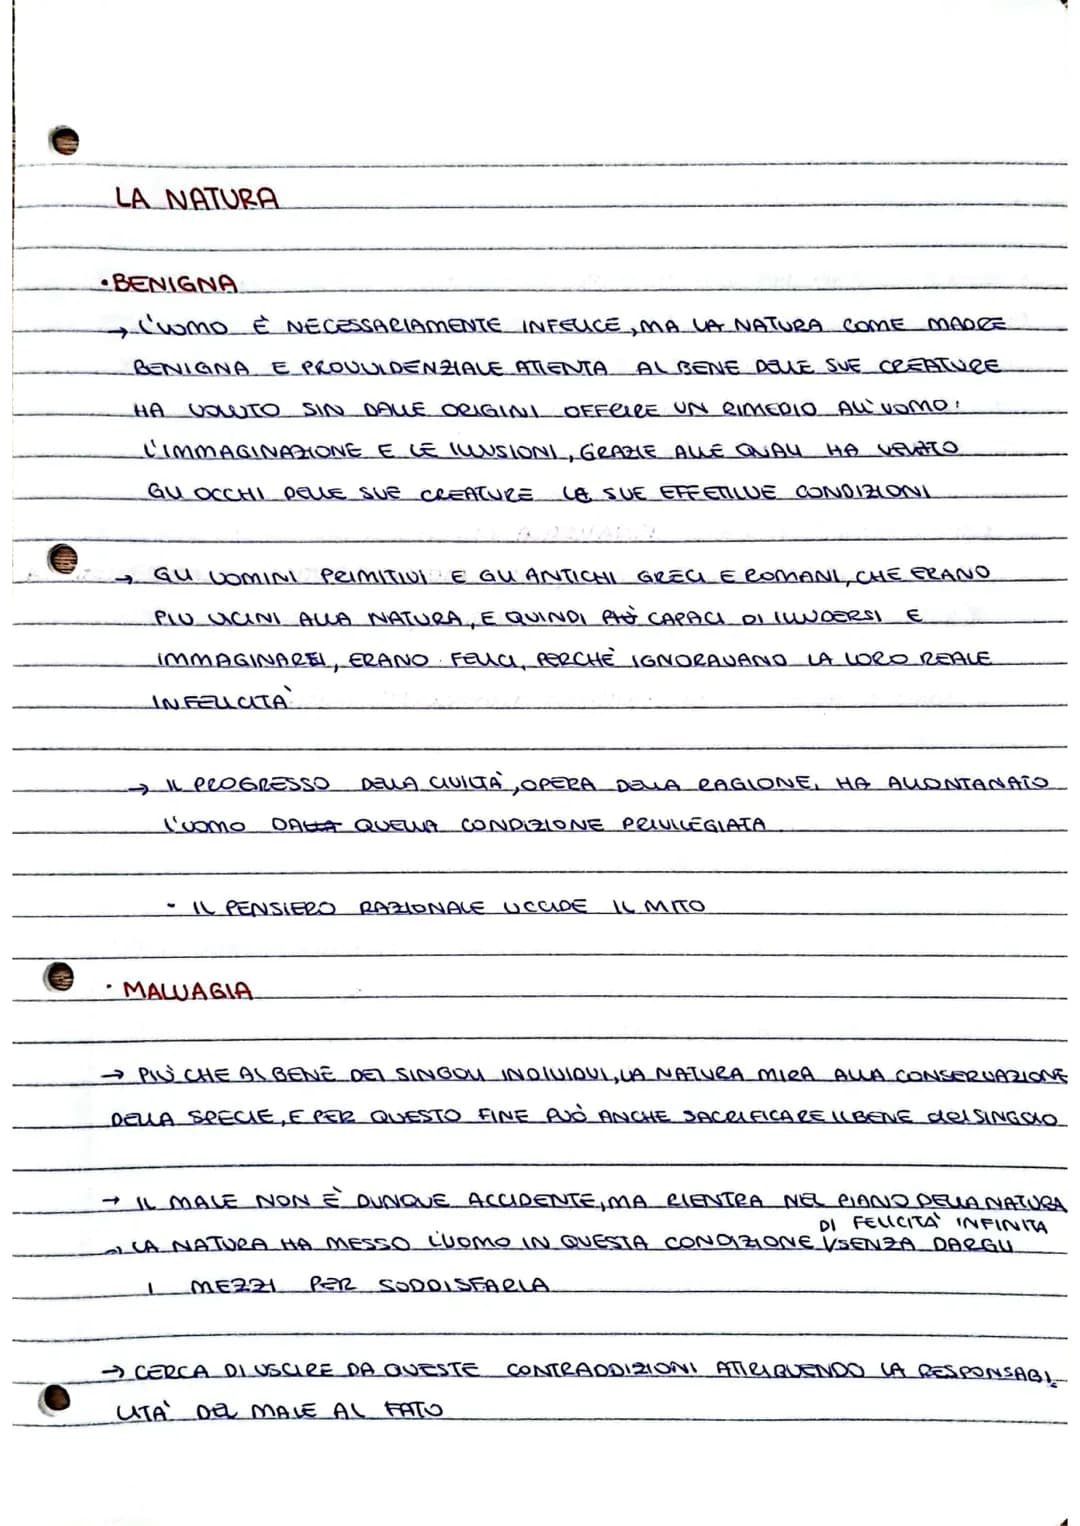 LA NATURA
• BENIGNA
→ L'UOMO È NECESSARIAMENTE INFELICE, MA LA NATURA COME MADRE
BENIGNA E PROVVIDENZIALE ATTENTA AL BENE DELLE SUE CREATURE
HA VOLUTO SIN DALLE ORIGINI OFFRIRE UN RIMEDIO ALL'UOMO:
L'IMMAGINAZIONE E LE ILLUSIONI, GRAZIE ALLE QUALI HA VELATO
GLI OCCHI DELLE SUE CREATURE LE SUE EFFETTIVE CONDIZIONI
→ GLI UOMINI PRIMITIVI E GLI ANTICHI GRECI E ROMANI, CHE ERANO
PIU VICINI ALLA NATURA, E QUINDI PIÙ CAPACI DI ILLUDERSI E
IMMAGINARSI, ERANO FELICI, PERCHÉ IGNORAVANO LA LORO REALE
INFELICITÀ
→ IL PROGRESSO DELLA CIVILTÀ, OPERA DELLA RAGIONE, HA ALLONTANATO
L'UOMO DA QUELLA CONDIZIONE PRIVILEGIATA
- IL PENSIERO RAZIONALE UCCIDE IL MITO
• MALVAGIA
→ PIÙ CHE AL BENE DEI SINGOLI INDIVIDUI, LA NATURA MIRA ALLA CONSERVAZIONE
DELLA SPECIE, E PER QUESTO FINE PUÒ ANCHE SACRIFICARE IL BENE del SINGOLO
→ IL MALE NON È DUNQUE ACCIDENTE, MA RIENTRA NEL PIANO DELLA NATURA
DI FELICITÀ INFINITA
→ LA NATURA HA MESSO L'UOMO IN QUESTA CONDIZIONE V SENZA DARGLI
I MEZZI PER SODDISFARLA
→ CERCA DI USCIRE DA QUESTE CONTRADDIZIONI ATTRIBUENDO LA RESPONSABI_
LITÀ DEL MALE AL FATO